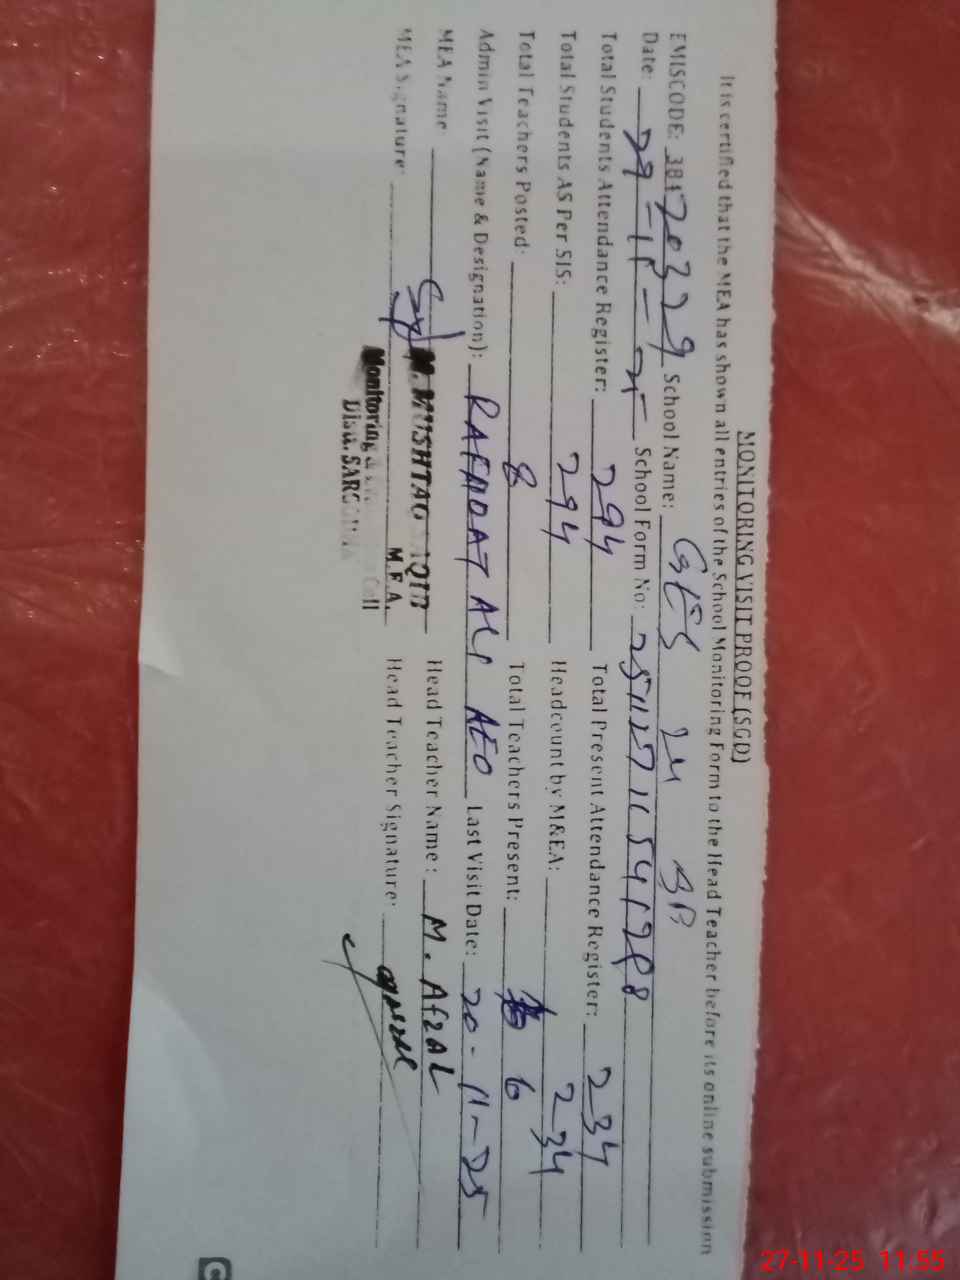 MONITORING VISIT PROOF (SGD)
It is certified that the MEA has shown all entries of the School Monitoring Form to the Head Teacher before its online submission
EMISCODE: 38420329 School Name: GES 24 BB
Date: School Form No:
Total Students Attendance Register: 294 Total Present Attendance Register: 234
Total Students AS Per SIS: 294 Headcount by M&EA: 234
Total Teachers Posted: 8 Total Teachers Present: 6
Admin Visit (Name & Designation): RAFAQAT ALI AEO Last Visit Date: 20-11-25
MEA Name: M. MUSHTAQ Head Teacher Name: M. AFZAL
MEA Signature: M.E.A. Head Teacher Signature:
Monitoring & Cell
Distt. SARGODHA
27-11-25 11:55